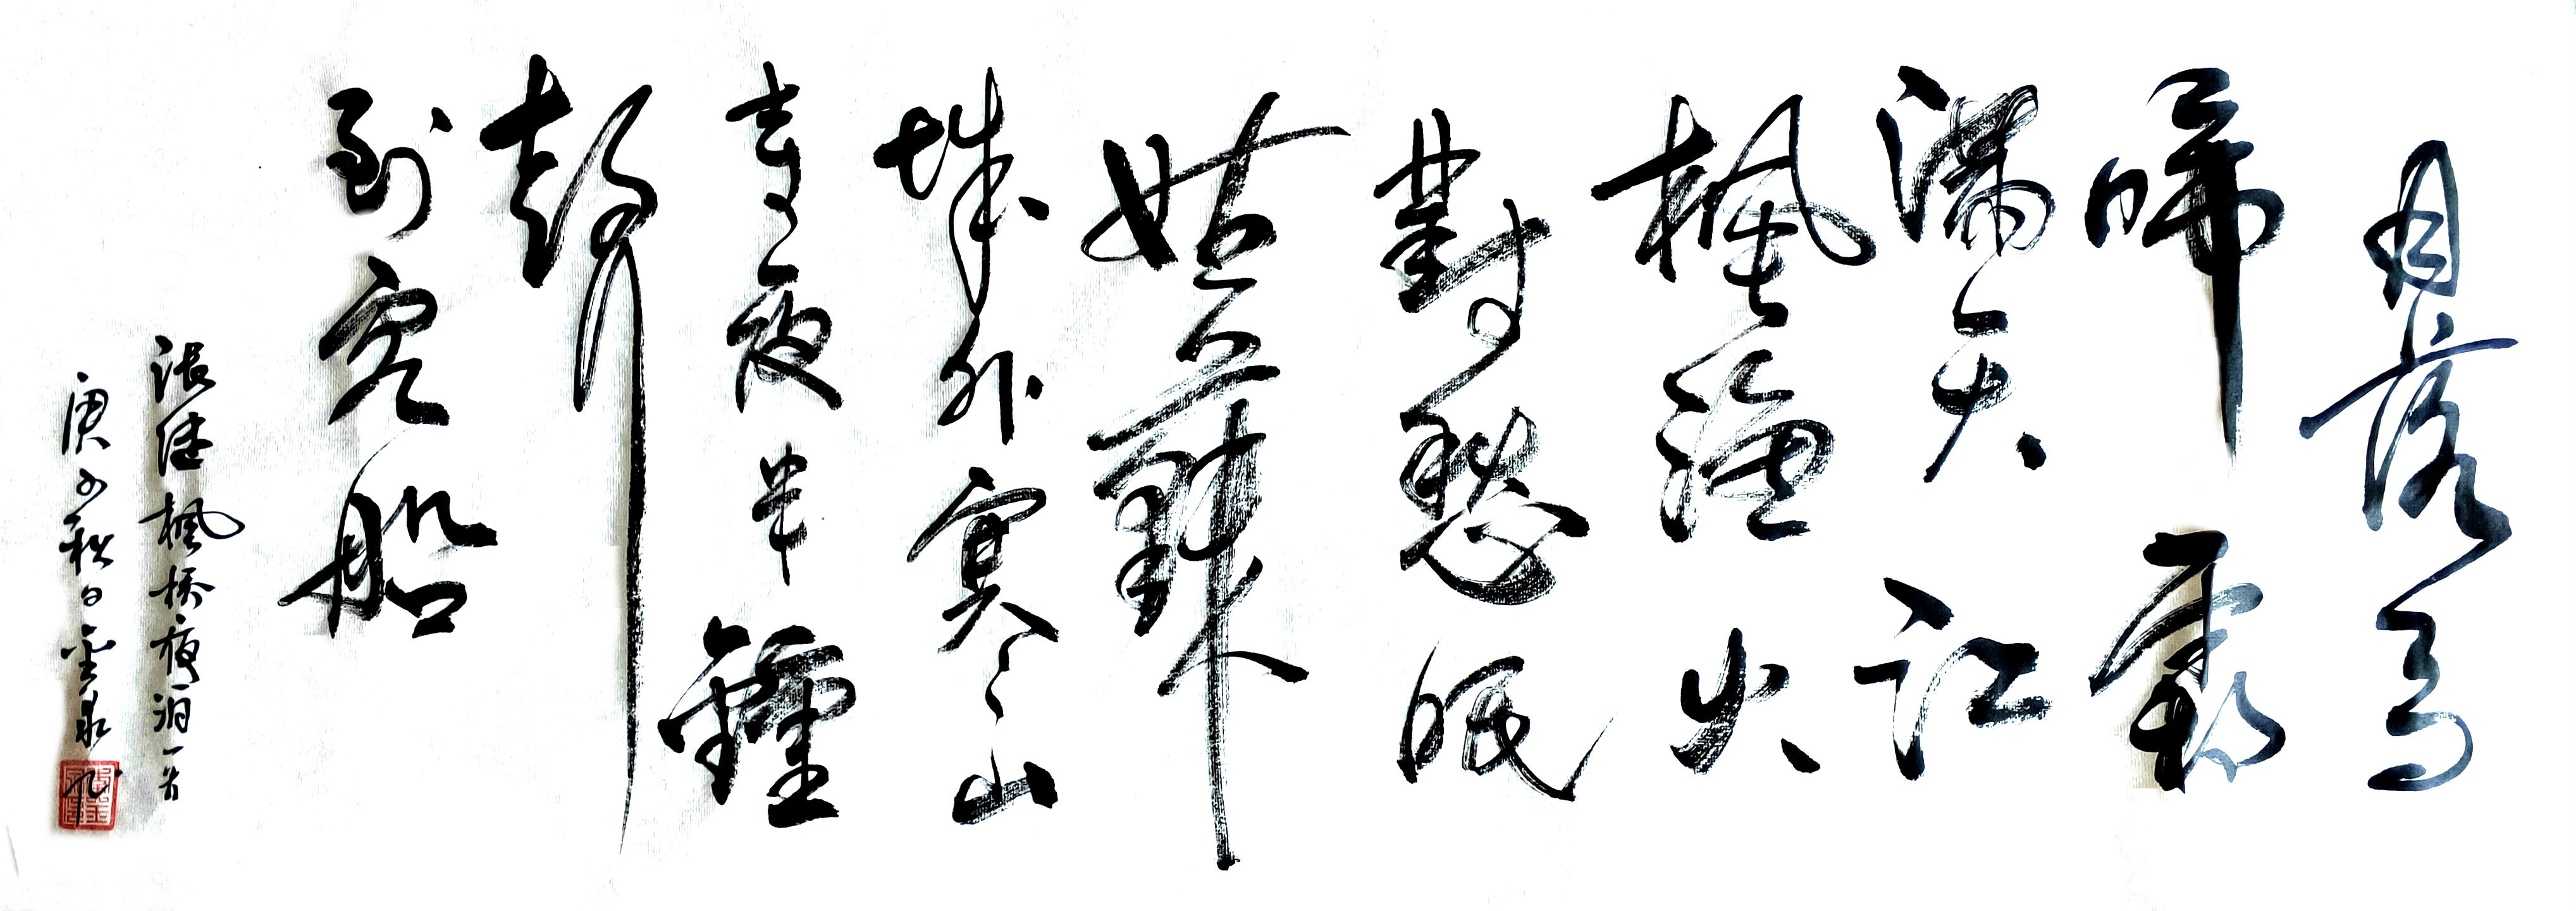 月落烏
啼霜
滿天江
楓漁火
對愁眠
姑蘇
城外寒山
寺夜半鐘
聲
到客船
張継楓橋夜泊一首
庚子秋日金泉